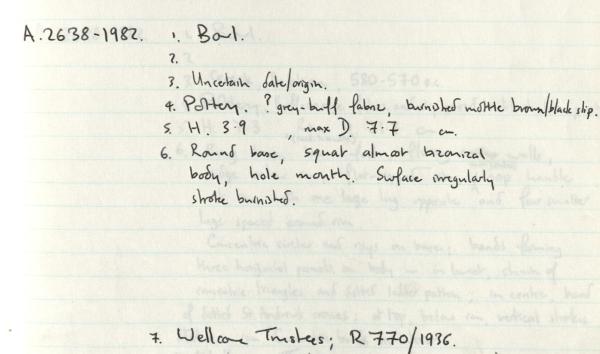 A.2638-1982. 1. Bowl.
2.
3. Uncertain date/origin.
4. Pottery. ? grey-buff fabric, burnished mottle brown/black slip.
5. H. 3.9 , max D. 7.7 cm.
6. Round base, squat almost biconical
body, hole mouth. Surface irregularly
stroke burnished.
7. Wellcome Trustees; R 770/1936.